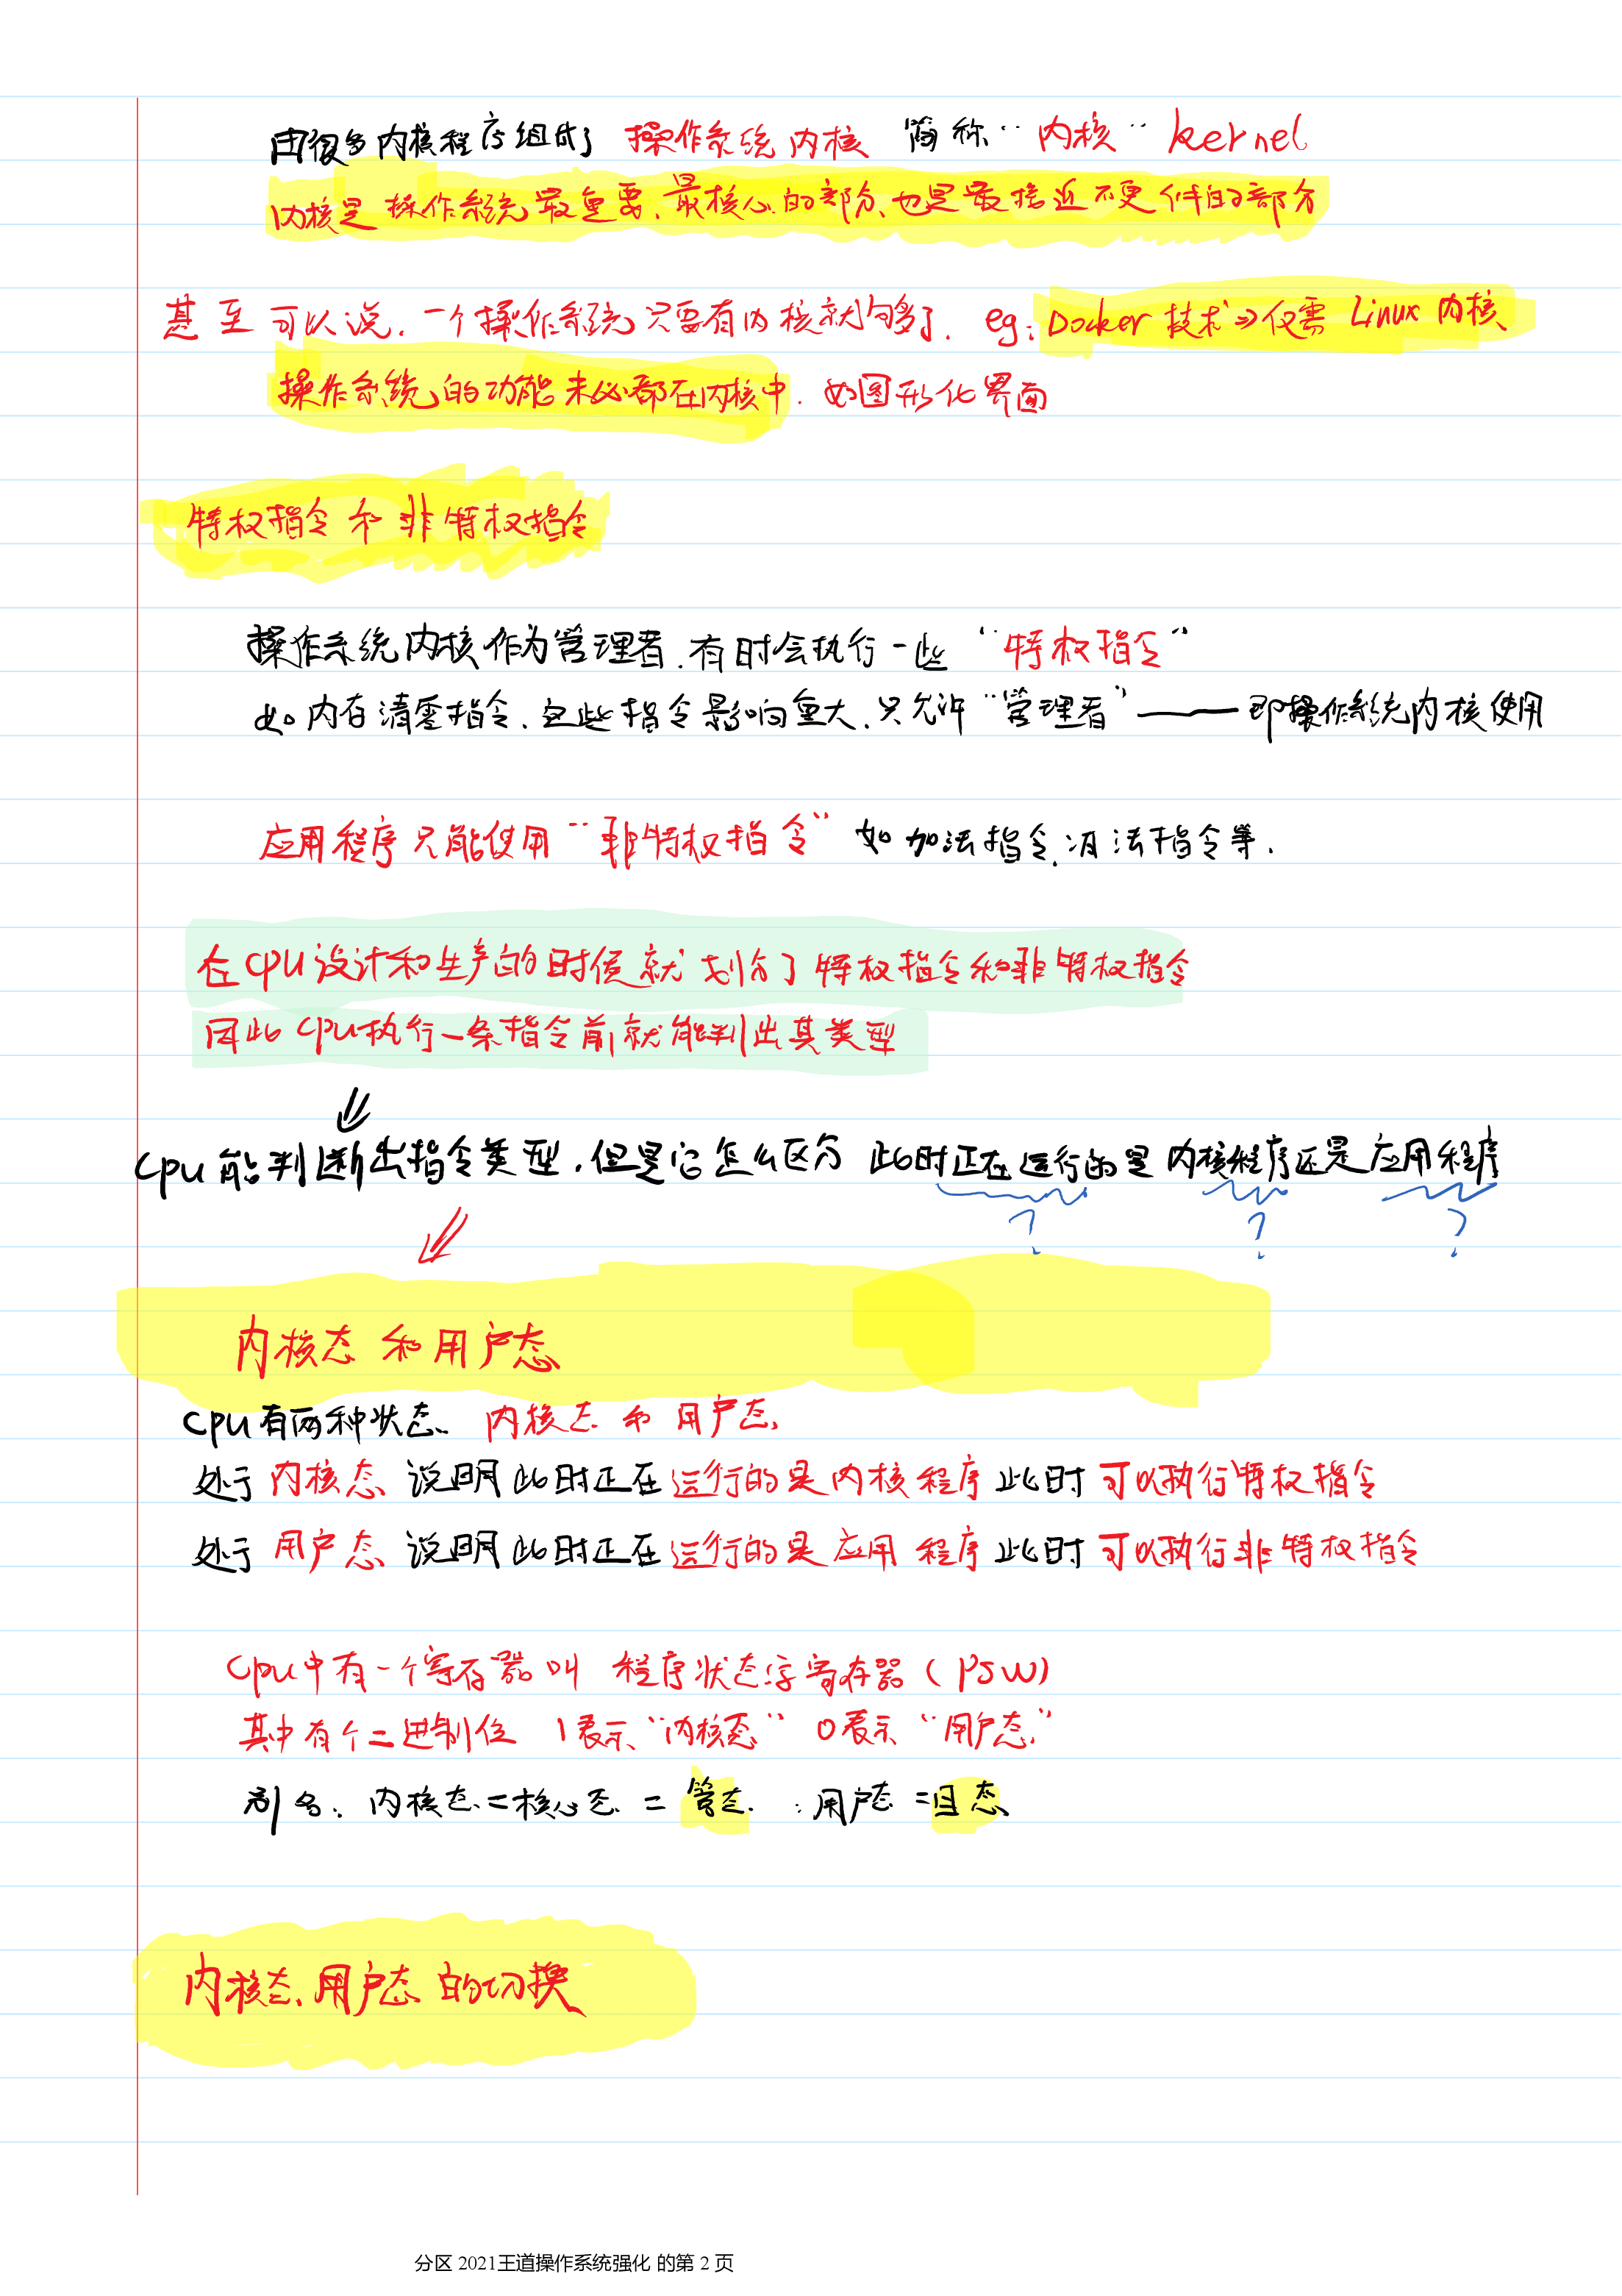 由很多内核程序组成了 操作系统内核 简称“内核” kernel
内核是操作系统最重要、最核心的部分、也是最接近硬件的部分
甚至可以说. 一个操作系统只要有内核就够了. eg: Docker 技术 => 仅需 Linux 内核
操作系统的功能未必都在内核中. 如图形化界面
特权指令和非特权指令
操作系统内核作为管理者.有时会执行一些“特权指令”
如内存清零指令.这些指令影响重大.只允许“管理者”——即操作系统内核使用
应用程序只能使用“非特权指令”如加法指令.减法指令等.
在CPU设计和生产的时候就划分了特权指令和非特权指令
因此CPU执行一条指令前就能判出其类型
CPU能判断出指令类型.但是它怎么区分 此时正在运行的是内核程序还是应用程序
? ? ?
内核态和用户态
CPU有两种状态、内核态和用户态.
处于内核态 说明此时正在运行的是内核程序 此时可以执行特权指令
处于用户态 说明此时正在运行的是应用程序 此时可以执行非特权指令
CPU中有一个寄存器叫 程序状态字寄存器(PSW)
其中有个二进制位 1表示“内核态” 0表示“用户态”
别名: 内核态=核心态=管态. 用户态=目态
内核态、用户态的切换
分区 2021王道操作系统强化 的第 2 页